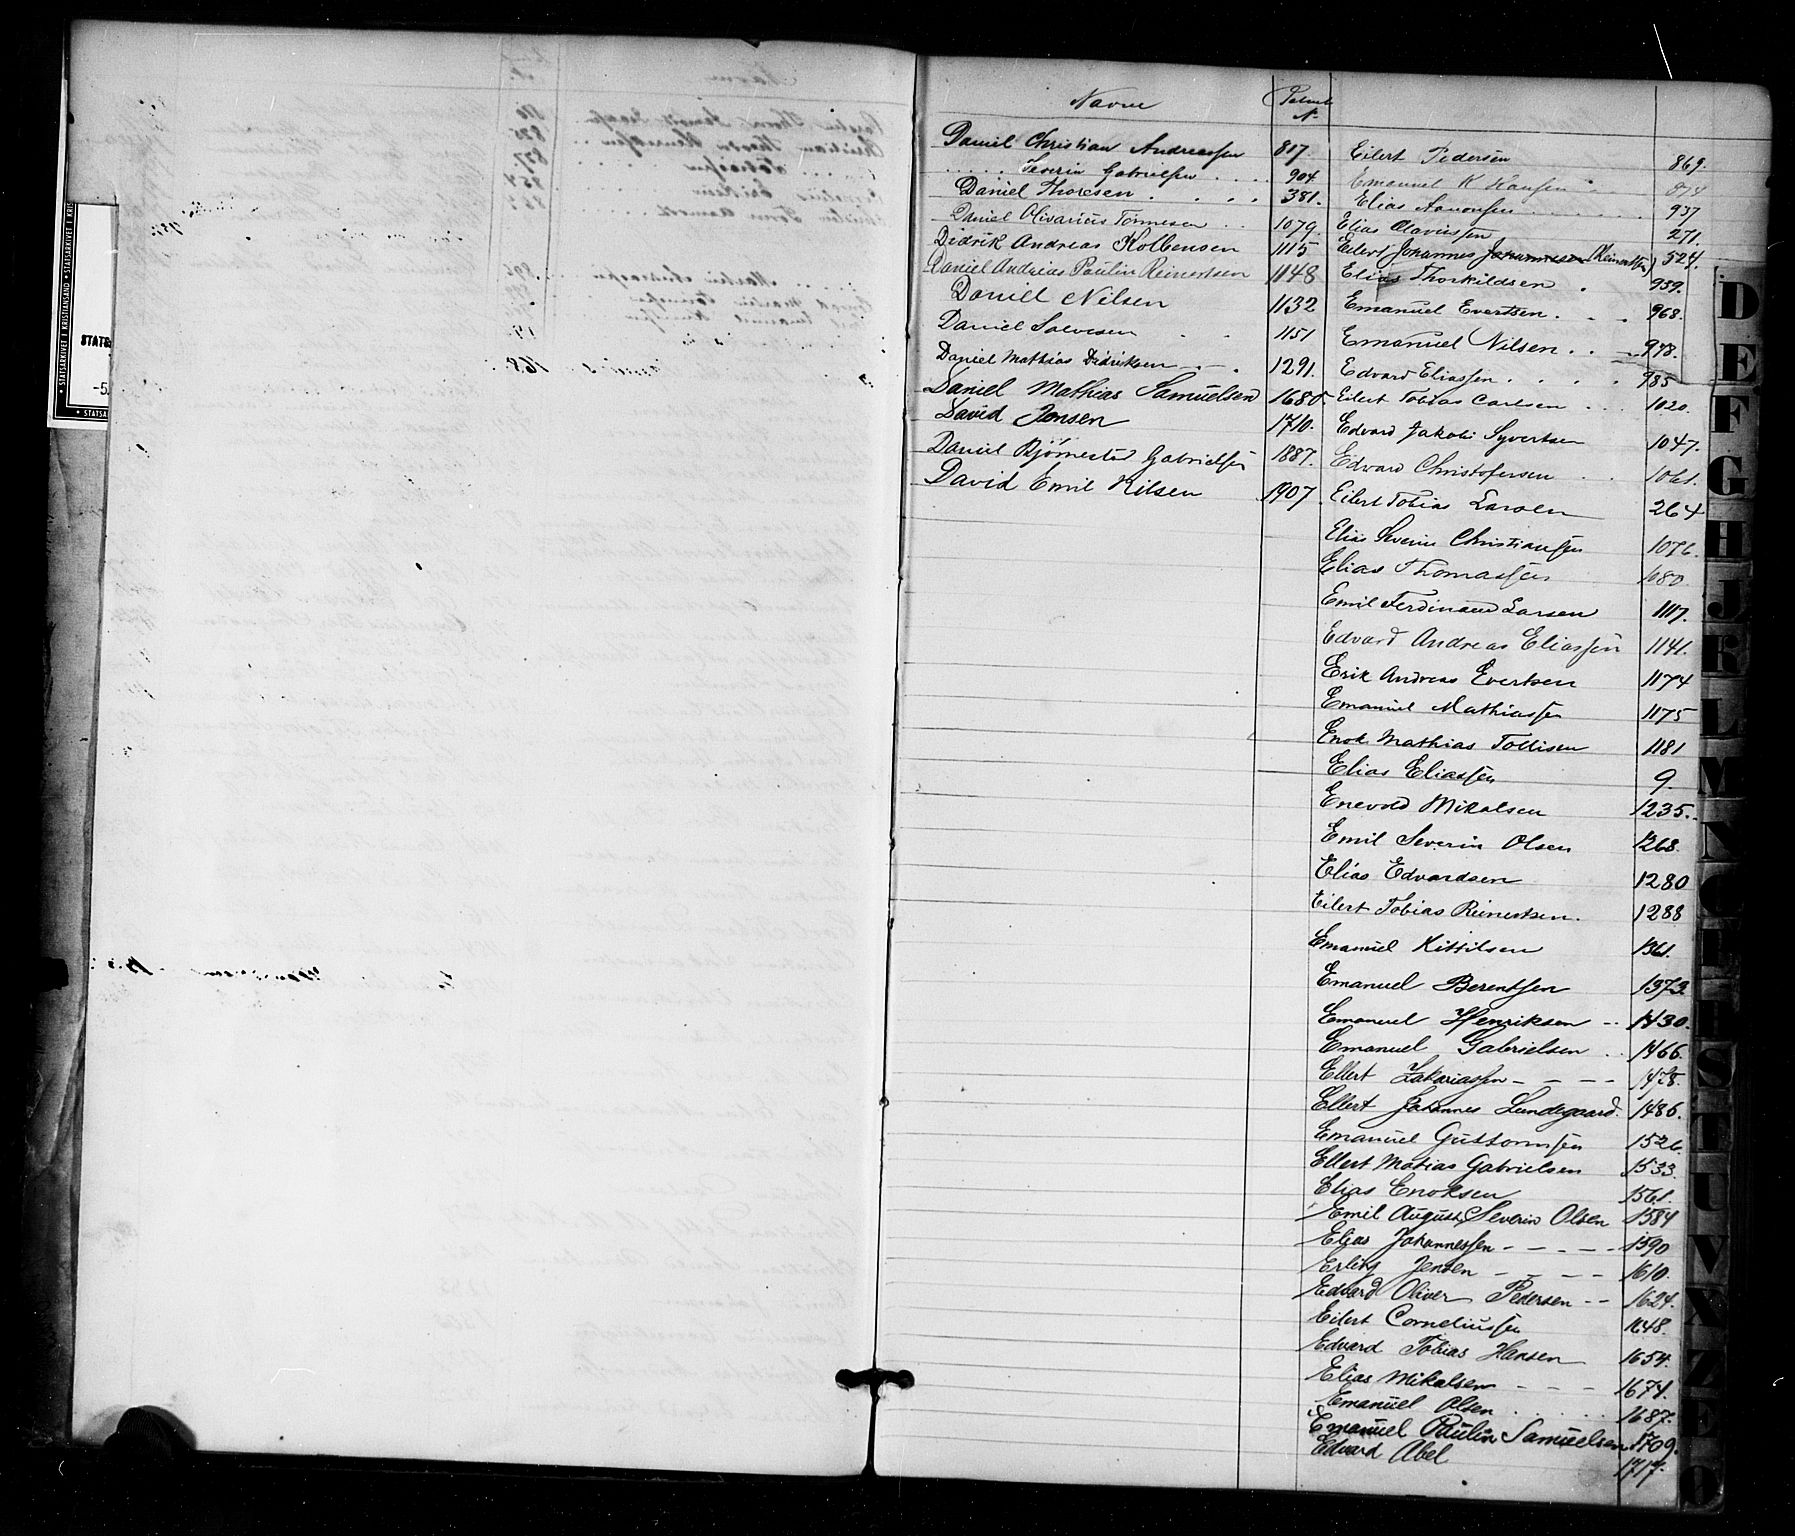 Navne
Daniel Christian Andreassen 817.
..... Severin Gabrielsen .... 904.
Daniel Thoresen ..... 381.
Daniel Olivarius Tønnesen .. 1079.
Didrik Andreas Kolbensen 1115
Daniel Andreas Paulin Reinertsen 1148
Daniel Nilsen 1132
Daniel Salvesen 1151
Daniel Mathias Didriksen 1291.
Daniel Mathias Samuelsen 1680.
David Jensen 1710.
Daniel Bjørnestad Gabrielsen 1887.
David Emil Nilsen 1907.
Eilert Pedersen 869.
Emanuel K Hansen 874
Elias Aanonsen 937
Elias Olaviussen 271.
Eilert Johannes Johannessen (Reinertsen) 524.
Elias Thorkildsen . 959.
Emanuel Evertsen . . . 968.
Emanuel Nilsen . . 978.
Edvard Eliassen . . . . 985
Eilert Tobias Carlsen ... 1020.
Edvard Jakob Syvertsen 1047.
Edvard Christofersen 1061.
Eilert Tobias Larsen 264
Elias Severin Christiansen 1076.
Elias Thomassen 1080
Emil Ferdinand Larsen 1117.
Edvard Andreas Eliassen 1141.
Erik Andreas Evertsen 1174
Emanuel Mathiassen 1175
Enok Mathias Tollisen 1181
Elias Eliassen 9.
Enevold Mikalsen 1235.
Emil Severin Olsen 1268.
Elias Edvardsen 1280
Eilert Tobias Reinertsen. 1288
Emanuel Kittilsen 1361.
Emanuel Berentsen 1373.
Emanuel Henriksen .. 1430.
Emanuel Gabrielsen .. 1466.
Ellert Zakariassen - - - - 1478.
Ellert Johannes Lundegaard. 1486.
Emanuel Guttormsen 1526.
Ellert Matias Gabrielsen 1533.
Elias Enoksen 1561.
Emil August Severin Olsen 1584
Elias Johannessen - - - - - 1590
Erling Jensen - - - - 1610.
Edvard Oliver Pedersen -- 1624.
Eilert Corneliussen 1648.
Edvard Tobias Hansen 1654.
Elias Mikalsen - - - 1674.
Emanuel Olsen 1687.
Emanuel Paulin Samuelsen 1709.
Edvard Abel 1717.
D
E
F
G
H
J
K
L
M
N
S
T
U
V
X
Z
Æ
Ø
STATSARKIVET I KRISTIANSAND